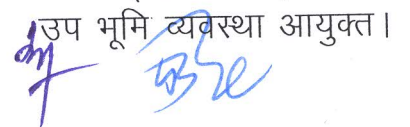 उप भूमि व्यवस्था आयुक्त।